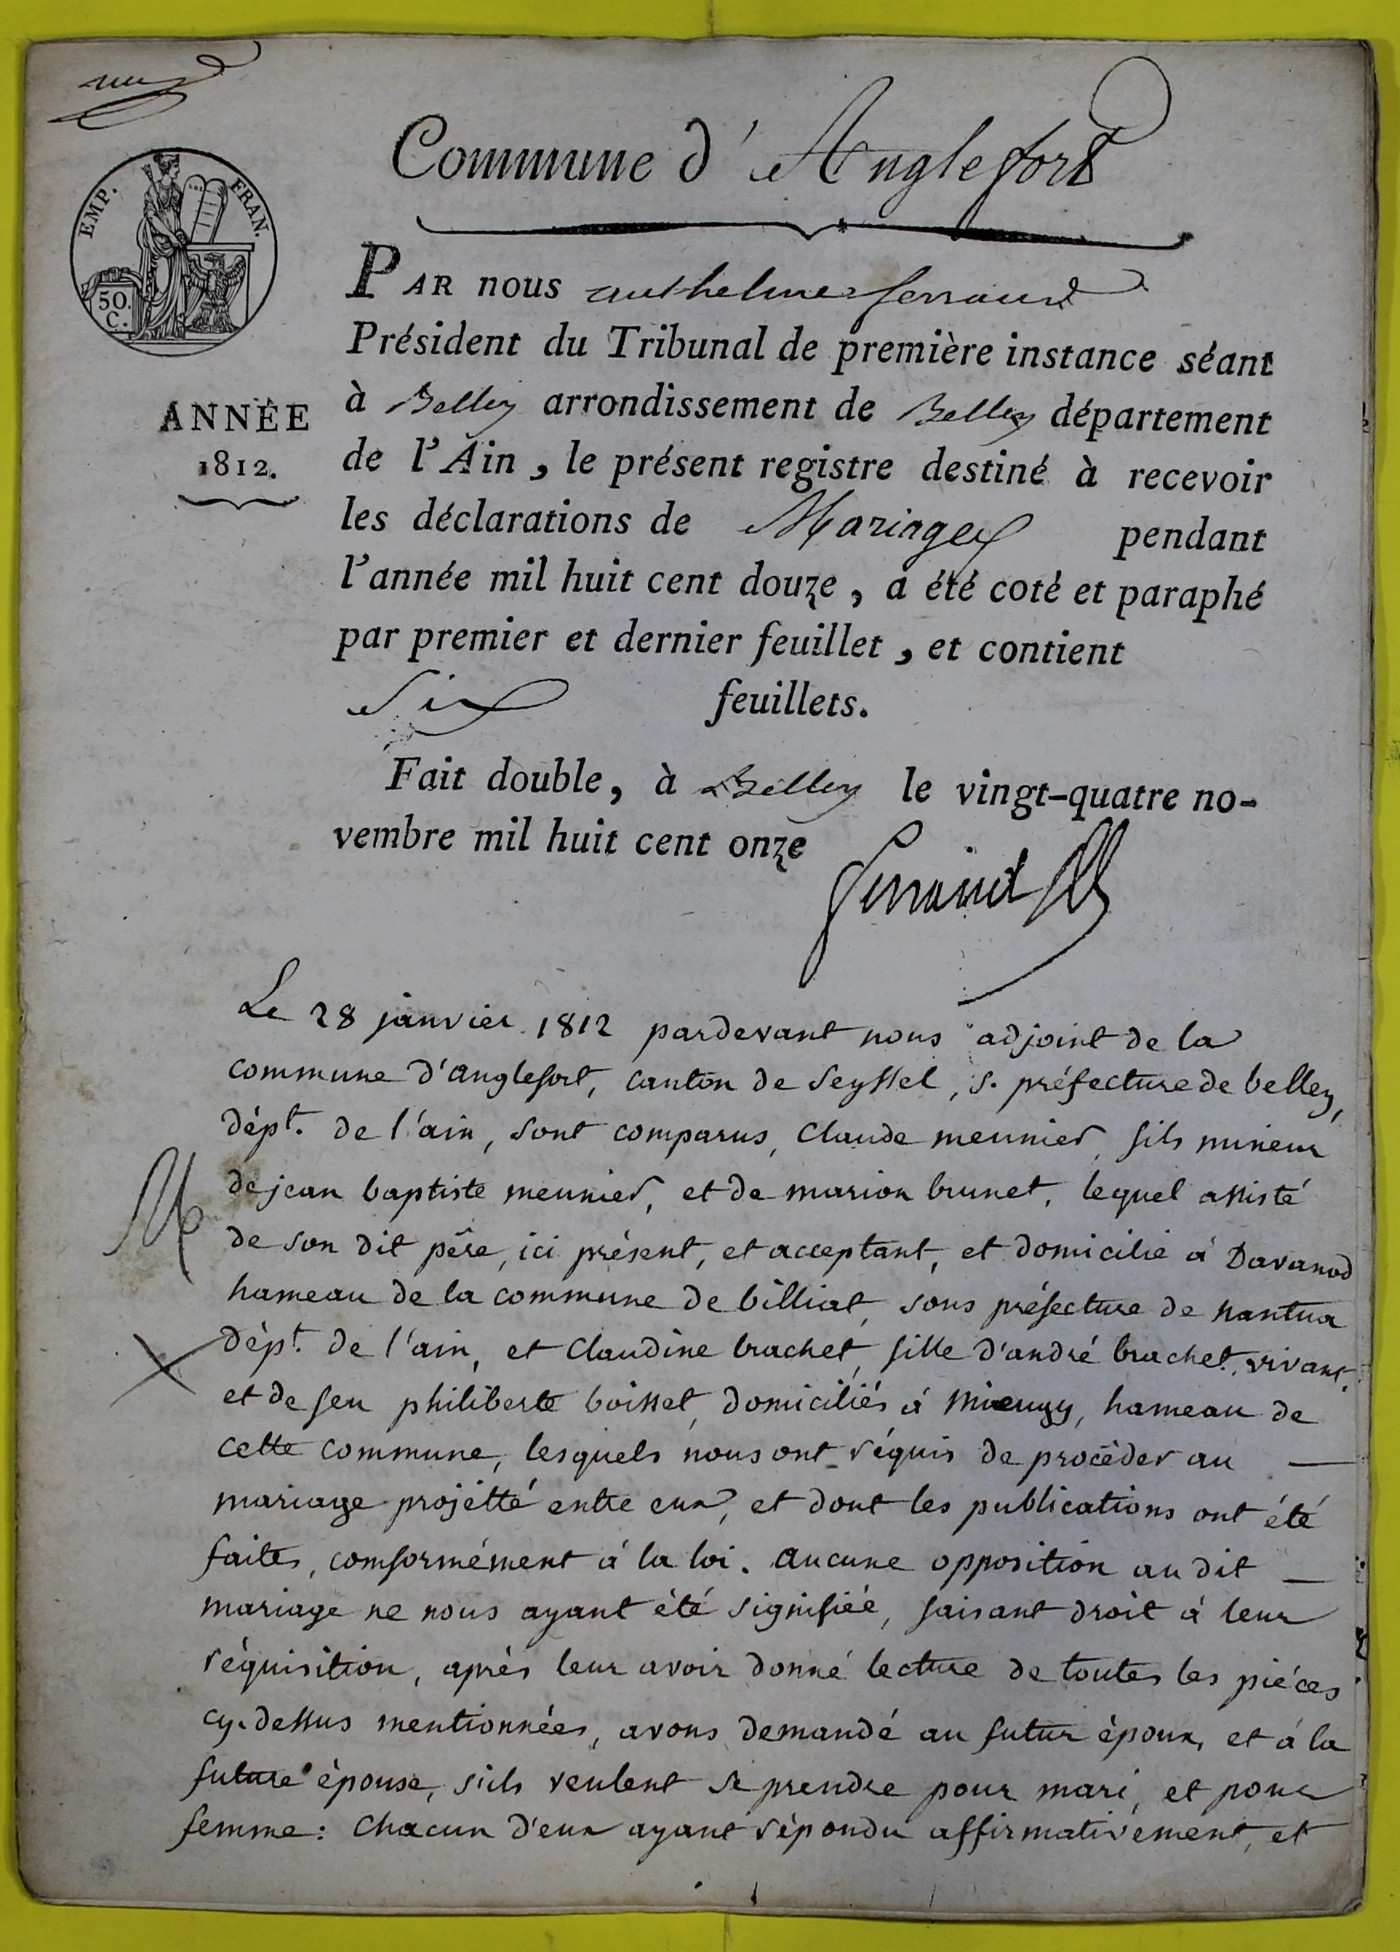 Commune d'Anglefort
EMP. FRAN.
50.
C.
PAR nous anthelme ferrand
Président du Tribunal de première instance séant
à Belley arrondissement de Belley département
ANNÉE
1812.
de l'Ain, le présent registre destiné à recevoir
les déclarations de Mariages pendant
l'année mil huit cent douze, a été coté et paraphé
par premier et dernier feuillet, et contient
Six feuillets.
Fait double, à Belley le vingt-quatre no-
vembre mil huit cent onze
ferrand
Le 28 janvier 1812 pardevant nous adjoint de la
commune d'anglefort, canton de Seyssel, s. préfecture de belley,
dépt. de l'ain, sont comparus, Claude meunier, fils mineur
de jean baptiste meunier, et de marion brunet, lequel assisté
M
de son dit père, ici présent, et acceptant, et domicilié à Davanod
hameau de la commune de billiat, sous préfecture de nantua
dépt. de l'ain, et Claudine brachet, fille d'andré brachet, vivant,
et de feu philiberte boisset, domiciliés à mieugy, hameau de
cette commune, lesquels nous ont réquis de procéder au
mariage projetté entre eux, et dont les publications ont été
faites, comformément à la loi. aucune opposition au dit
mariage ne nous ayant été signifiée, faisant droit à leur
réquisition, après leur avoir donné lecture de toutes les piéces
cy-dessus mentionnées, avons demandé au futur époux, et à la
future épouse, s'ils veulent se prendre pour mari, et pour
femme: chacun d'eux ayant répondu affirmativement, et